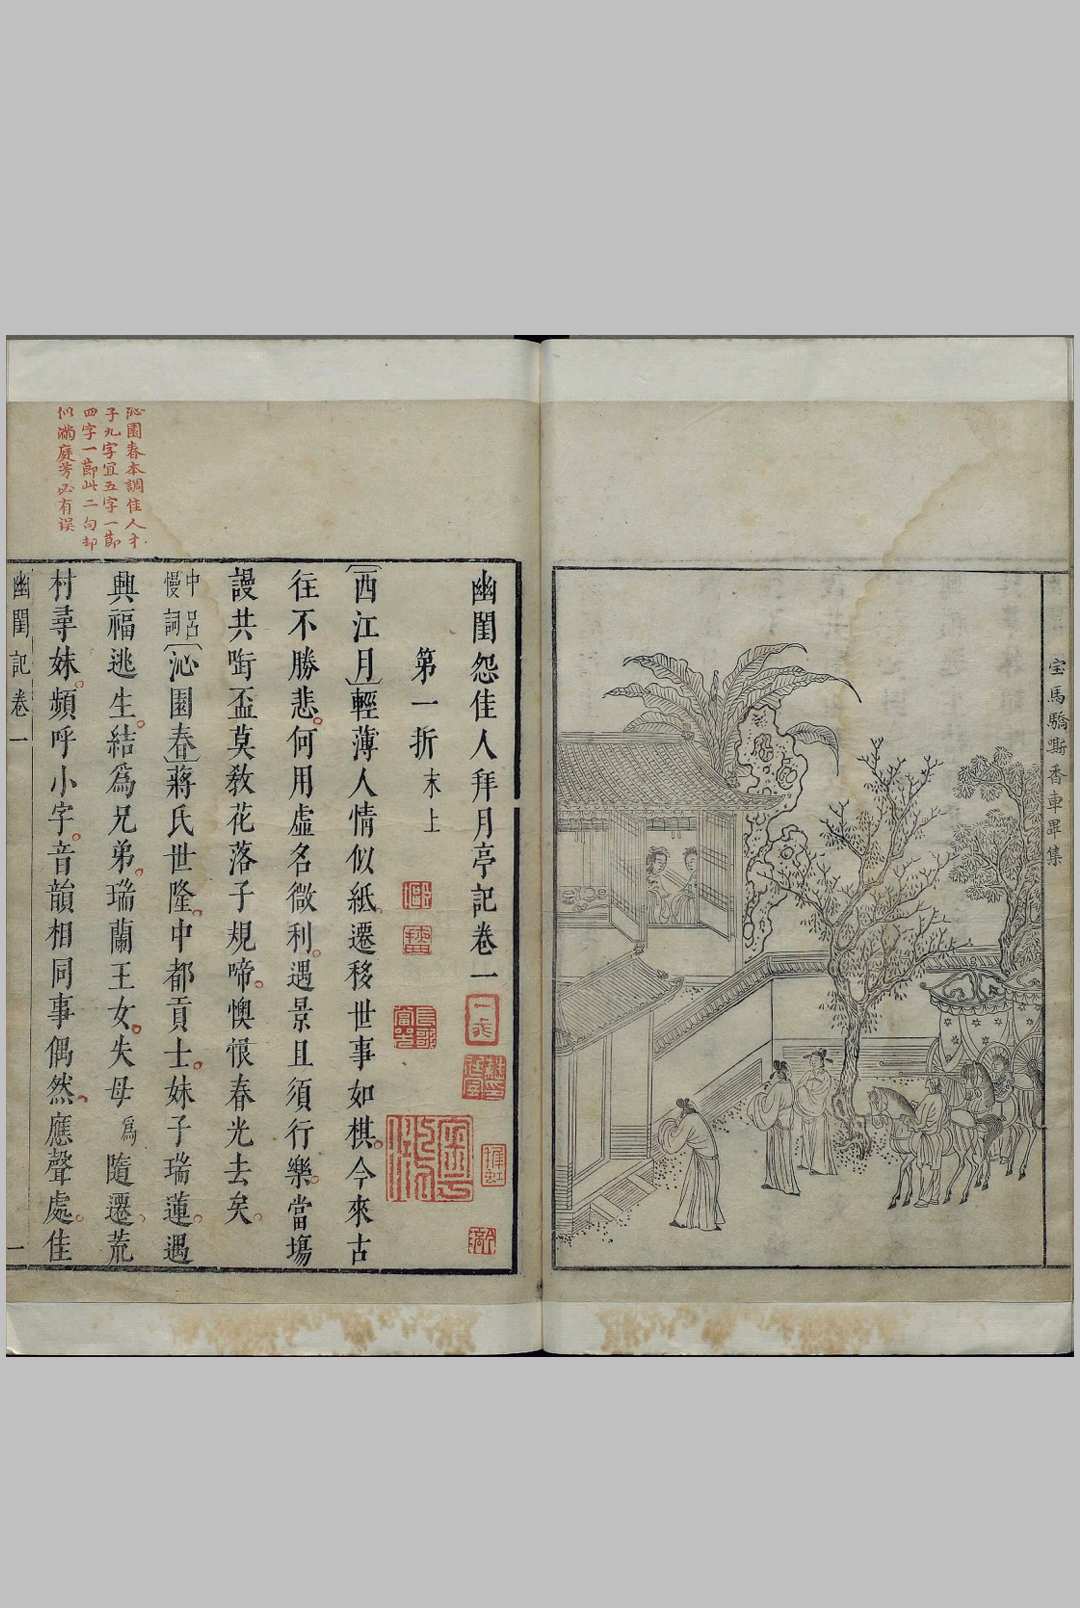 宝馬驕嘶香車畢集
幽閨怨佳人拜月亭記卷一
第一折 末上
〔西江月〕輕薄人情似紙遷移世事如棋今來古
往不勝悲何用虛名微利遇景且須行樂當塲
謾共啣盃莫教花落子規啼懊恨春光去矣
中呂慢詞〔沁園春〕蔣氏世隆中都貢士妹子瑞蓮遇
興福逃生結爲兄弟瑞蘭王女失母爲隨遷荒
村尋妹頻呼小字音韻相同事偶然應聲處佳
幽閨記卷一 一
沁園春本調佳人才
子九字宜五字一節
四字一節此二句却
似滿庭芳必有误